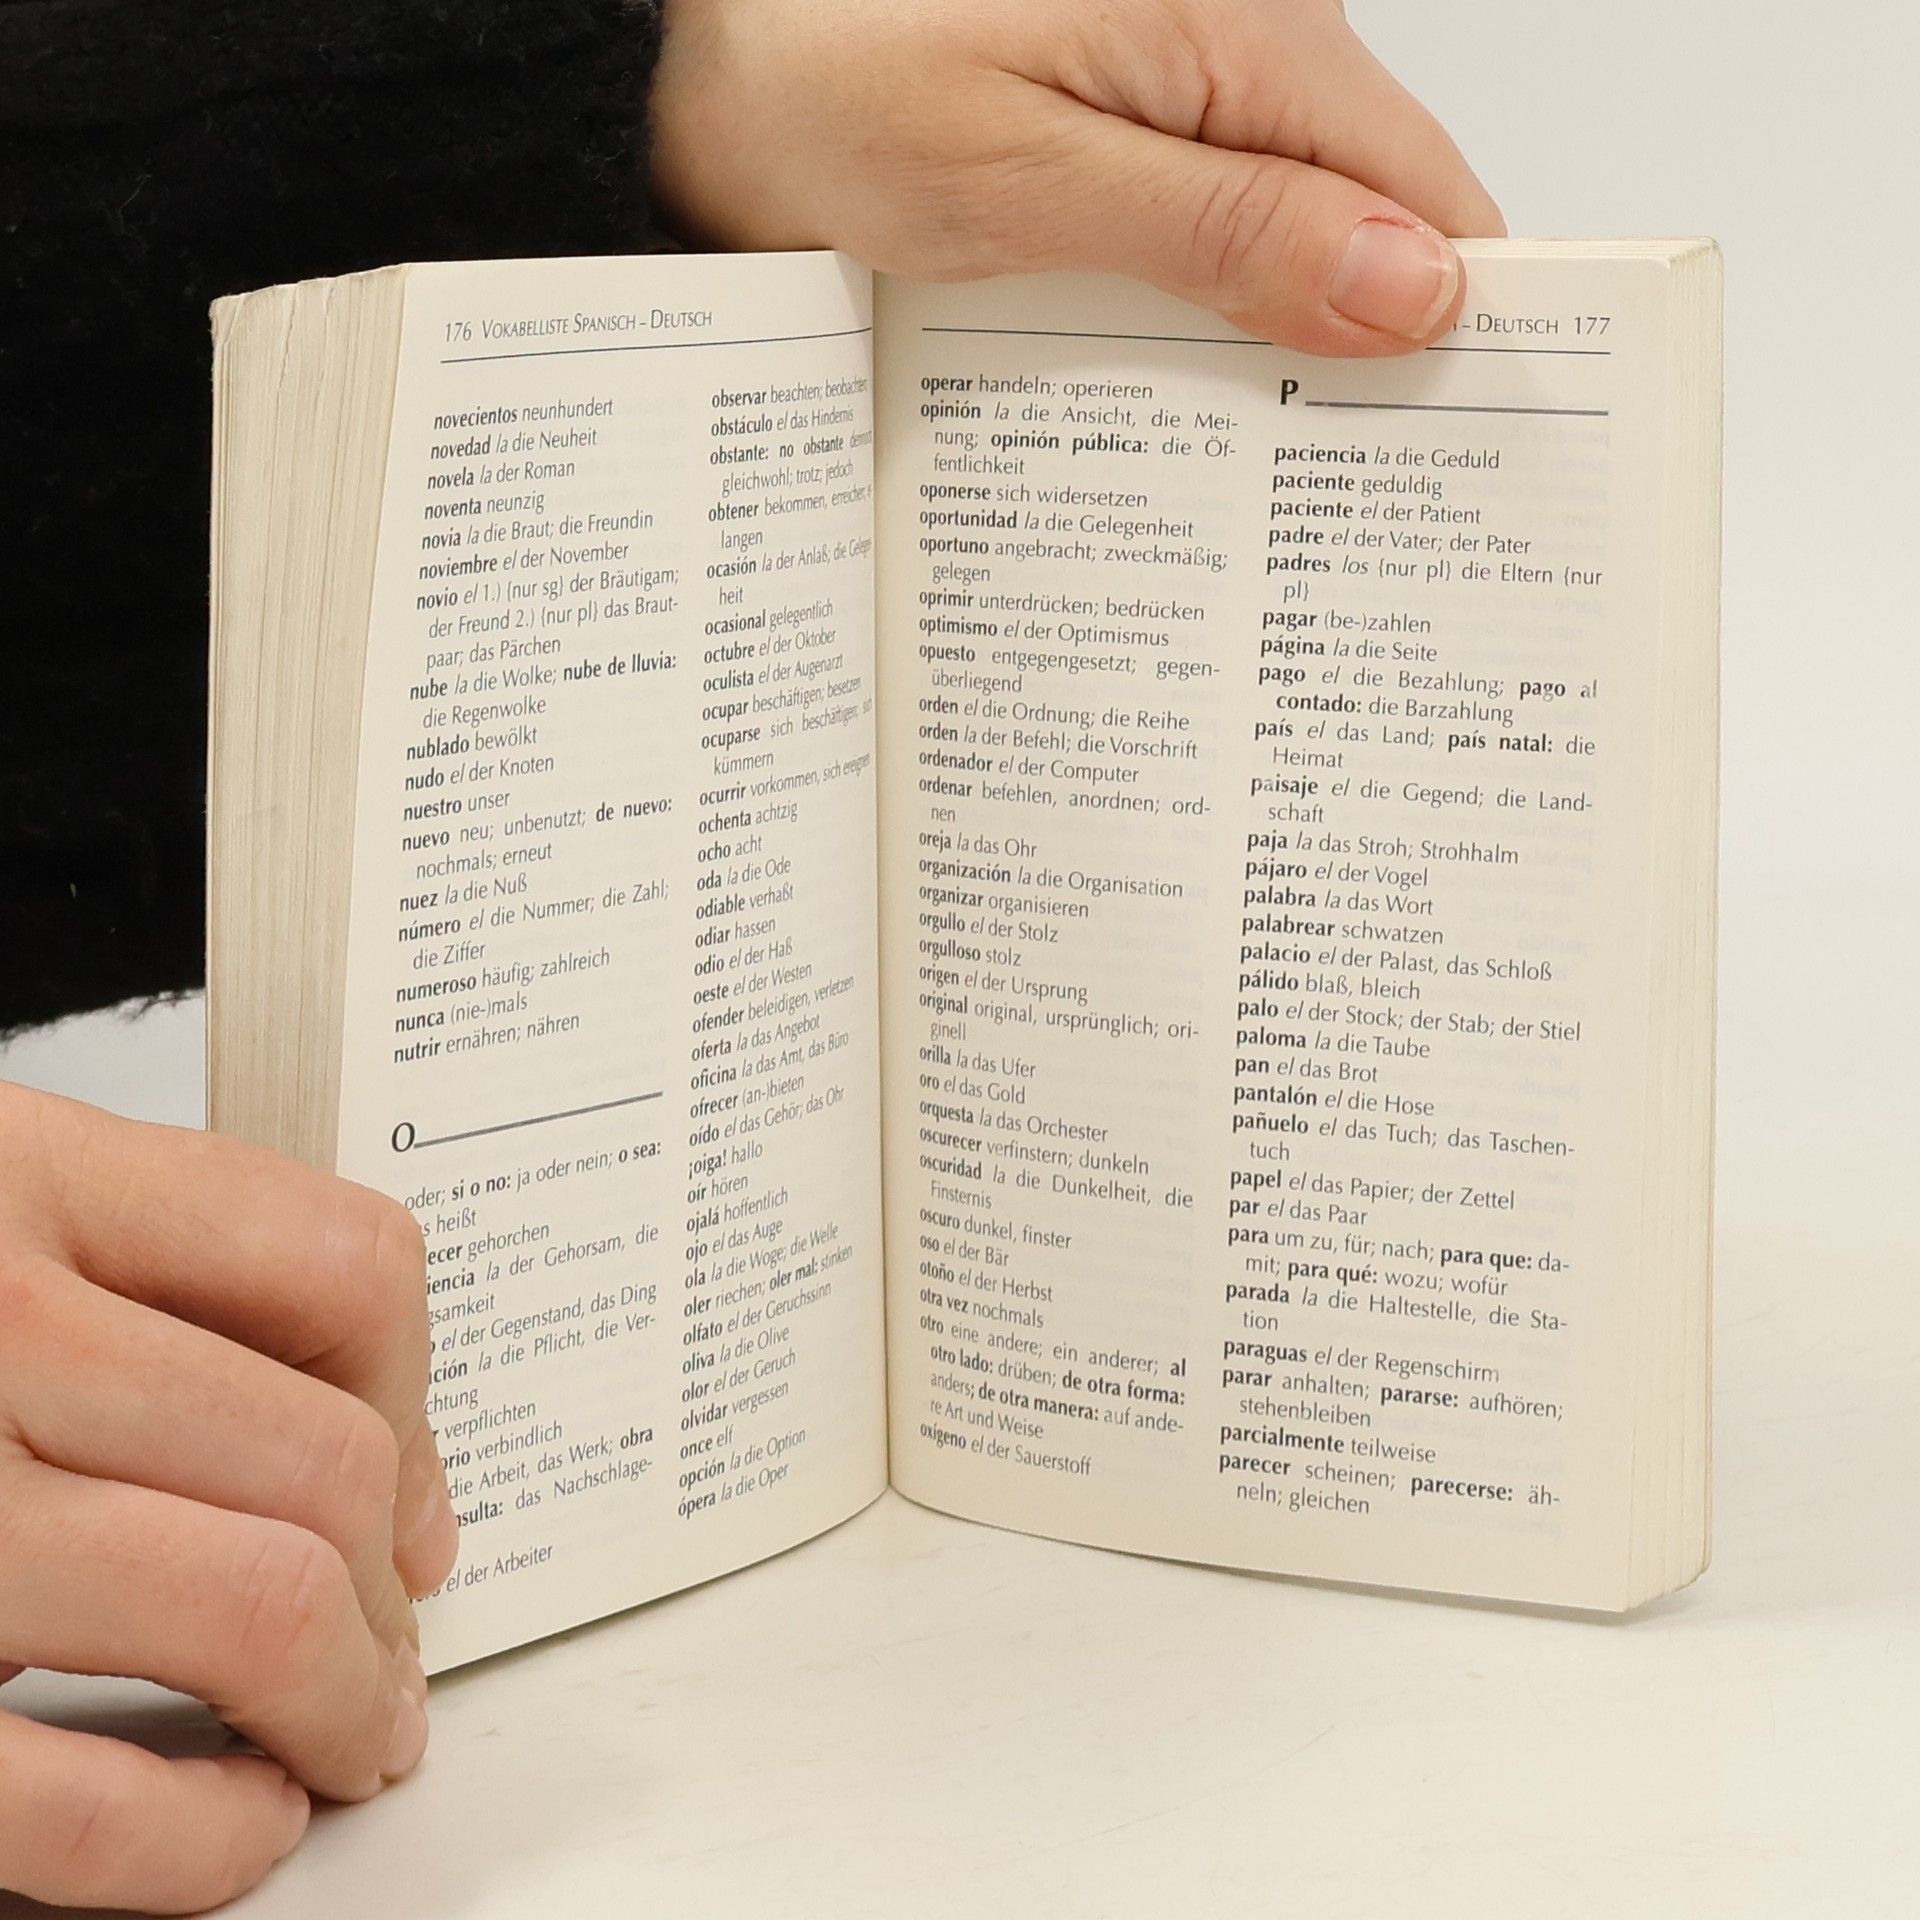 176 VOKABELLISTE SPANISCH – DEUTSCH
novecientos neunhundert
novedad la die Neuheit
novela la der Roman
noventa neunzig
novia la die Braut; die Freundin
noviembre el der November
novio el 1.) {nur sg} der Bräutigam;
der Freund 2.) {nur pl} das Braut-
paar; das Pärchen
nube la die Wolke; nube de lluvia:
die Regenwolke
nublado bewölkt
nudo el der Knoten
nuestro unser
nuevo neu; unbenutzt; de nuevo:
nochmals; erneut
nuez la die Nuß
número el die Nummer; die Zahl;
die Ziffer
numeroso häufig; zahlreich
nunca (nie-)mals
nutrir ernähren; nähren
O
oder; si o no: ja oder nein; o sea:
heißt
gehorchen
la der Gehorsam, die
el der Gegenstand, das Ding
la die Pflicht, die Ver-
verpflichten
verbindlich
die Arbeit, das Werk; obra
das Nachschlage-
el der Arbeiter
observar beachten; beobachten
obstáculo el das Hindernis
obstante: no obstante
gleichwohl; trotz; jedoch
obtener bekommen, erreichen;
langen
ocasión la der Anlaß; die
heit
ocasional gelegentlich
octubre el der Oktober
oculista el der Augenarzt
ocupar beschäftigen; besetzen
ocuparse sich beschäftigen;
kümmern
ocurrir vorkommen, sich ereignen
ochenta achtzig
ocho acht
oda la die Ode
odiable verhaßt
odiar hassen
odio el der Haß
oeste el der Westen
ofender beleidigen, verletzen
oferta la das Angebot
oficina la das Amt, das Büro
ofrecer (an-)bieten
oído el das Gehör; das Ohr
¡oiga! hallo
oír hören
ojalá hoffentlich
ojo el das Auge
ola la die Woge; die Welle
oler riechen; oler mal: stinken
olfato el der Geruchssinn
oliva la die Olive
olor el der Geruch
olvidar vergessen
once elf
opción la die Option
ópera la die Oper
– DEUTSCH 177
operar handeln; operieren
opinión la die Ansicht, die Mei-
nung; opinión pública: die Öf-
fentlichkeit
oponerse sich widersetzen
oportunidad la die Gelegenheit
oportuno angebracht; zweckmäßig;
gelegen
oprimir unterdrücken; bedrücken
optimismo el der Optimismus
opuesto entgegengesetzt; gegen-
überliegend
orden el die Ordnung; die Reihe
orden la der Befehl; die Vorschrift
ordenador el der Computer
ordenar befehlen, anordnen; ord-
nen
oreja la das Ohr
organización la die Organisation
organizar organisieren
orgullo el der Stolz
orgulloso stolz
origen el der Ursprung
original original, ursprünglich; ori-
ginell
orilla la das Ufer
oro el das Gold
orquesta la das Orchester
oscurecer verfinstern; dunkeln
oscuridad la die Dunkelheit, die
Finsternis
oscuro dunkel, finster
oso el der Bär
otoño el der Herbst
otra vez nochmals
otro eine andere; ein anderer; al
otro lado: drüben; de otra forma:
anders; de otra manera: auf ande-
re Art und Weise
oxígeno el der Sauerstoff
P
paciencia la die Geduld
paciente geduldig
paciente el der Patient
padre el der Vater; der Pater
padres los {nur pl} die Eltern {nur
pl}
pagar (be-)zahlen
página la die Seite
pago el die Bezahlung; pago al
contado: die Barzahlung
país el das Land; país natal: die
Heimat
paisaje el die Gegend; die Land-
schaft
paja la das Stroh; Strohhalm
pájaro el der Vogel
palabra la das Wort
palabrear schwatzen
palacio el der Palast, das Schloß
pálido blaß, bleich
palo el der Stock; der Stab; der Stiel
paloma la die Taube
pan el das Brot
pantalón el die Hose
pañuelo el das Tuch; das Taschen-
tuch
papel el das Papier; der Zettel
par el das Paar
para um zu, für; nach; para que: da-
mit; para qué: wozu; wofür
parada la die Haltestelle, die Sta-
tion
paraguas el der Regenschirm
parar anhalten; pararse: aufhören;
stehenbleiben
parcialmente teilweise
parecer scheinen; parecerse: äh-
neln; gleichen